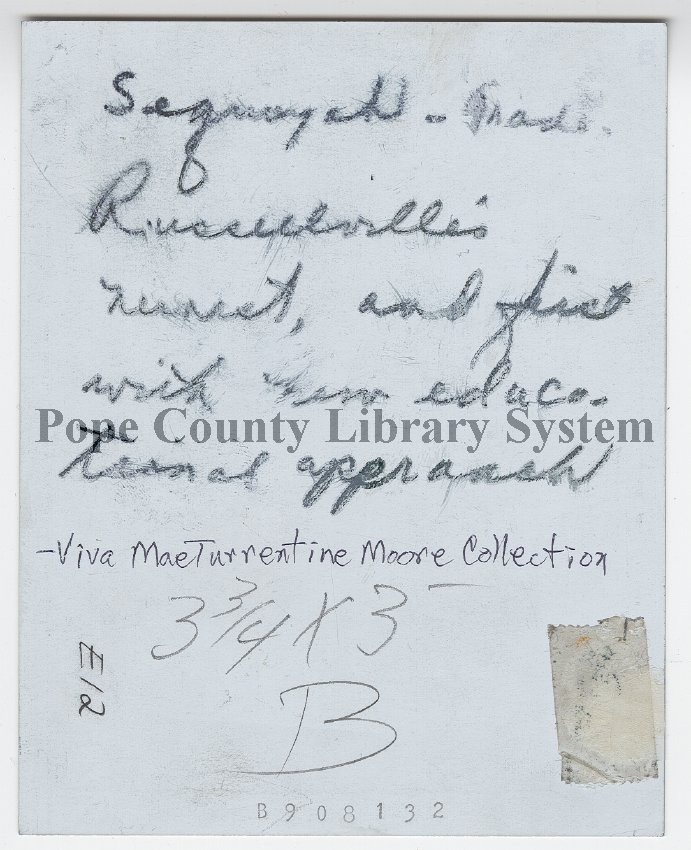 Sequoyah - Grade.
Russellville's
newest, and first
with new educa-
tional approach
Pope County Library System
-Viva Mae Turrentine Moore Collection
3 3/4 X 3
B
E12
B908132